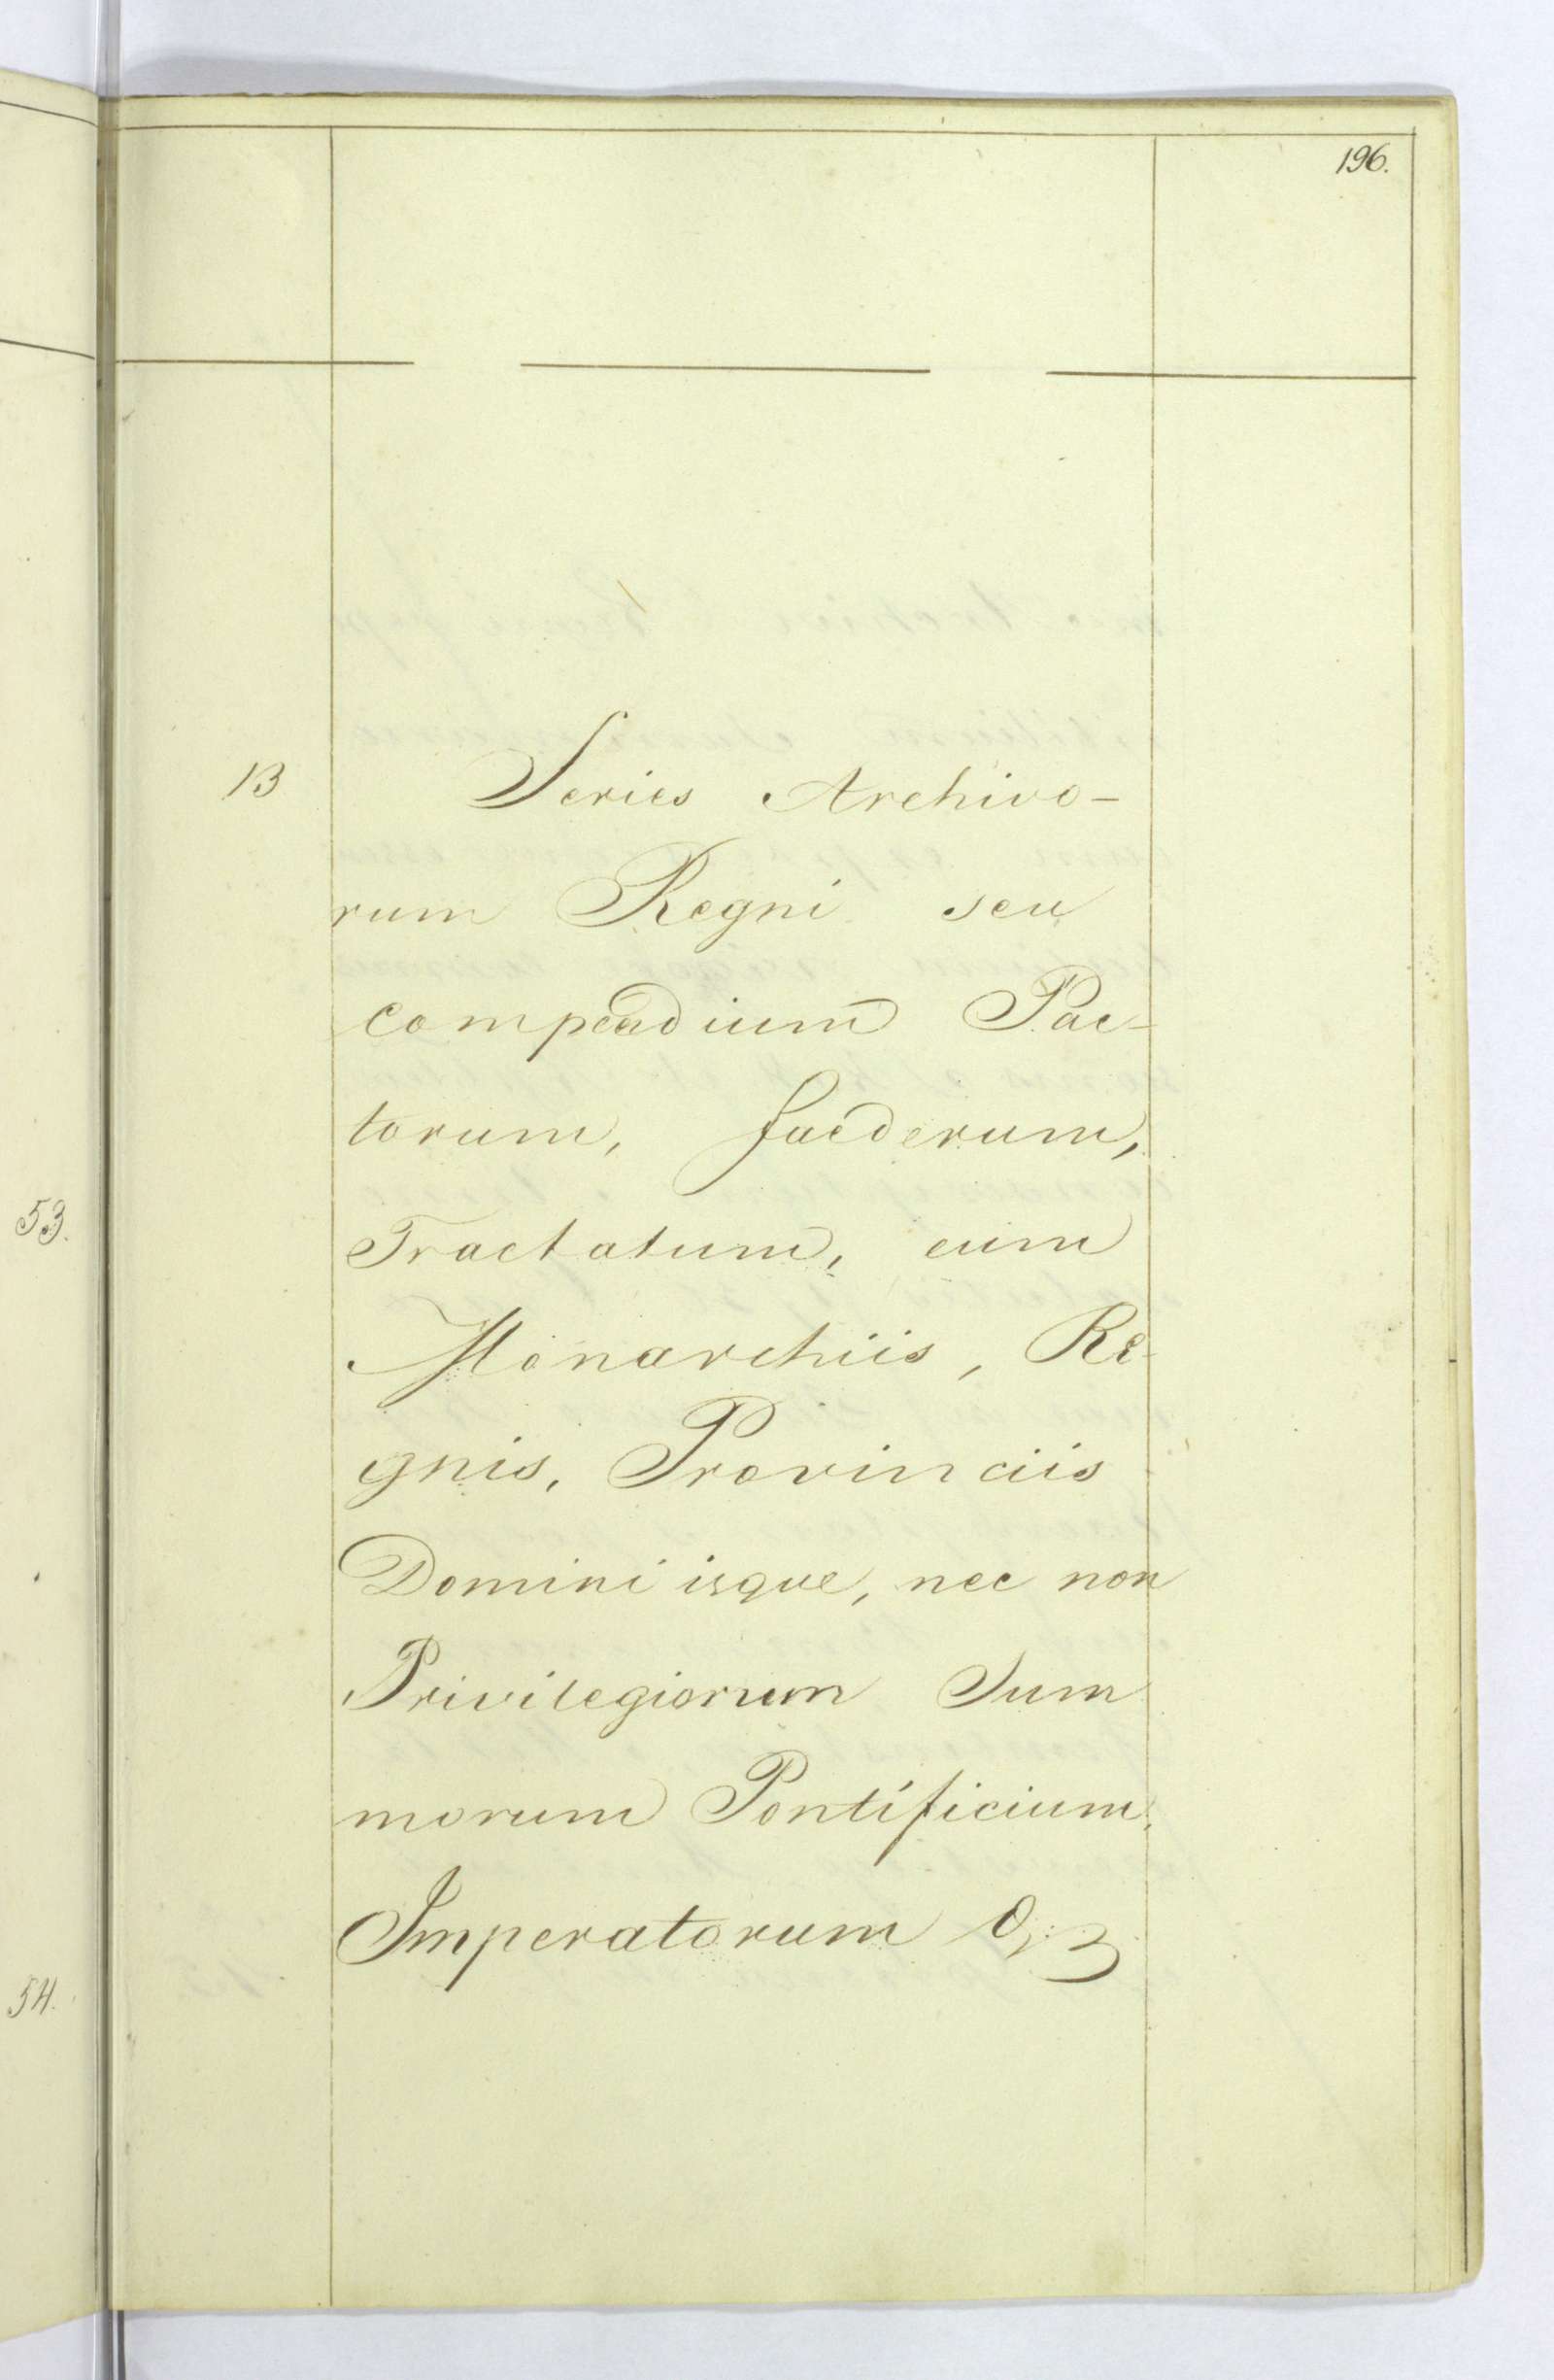 196.
13 Series Archivo-
rum Regni seu
compendium Pac-
torum, faederum,
Tractatum, cum
Monarchiis, Re-
gnis, Provinciis
Dominiisque, nec non
Privilegiorum Sum
morum Pontificium,
Imperatorum
53.
54.